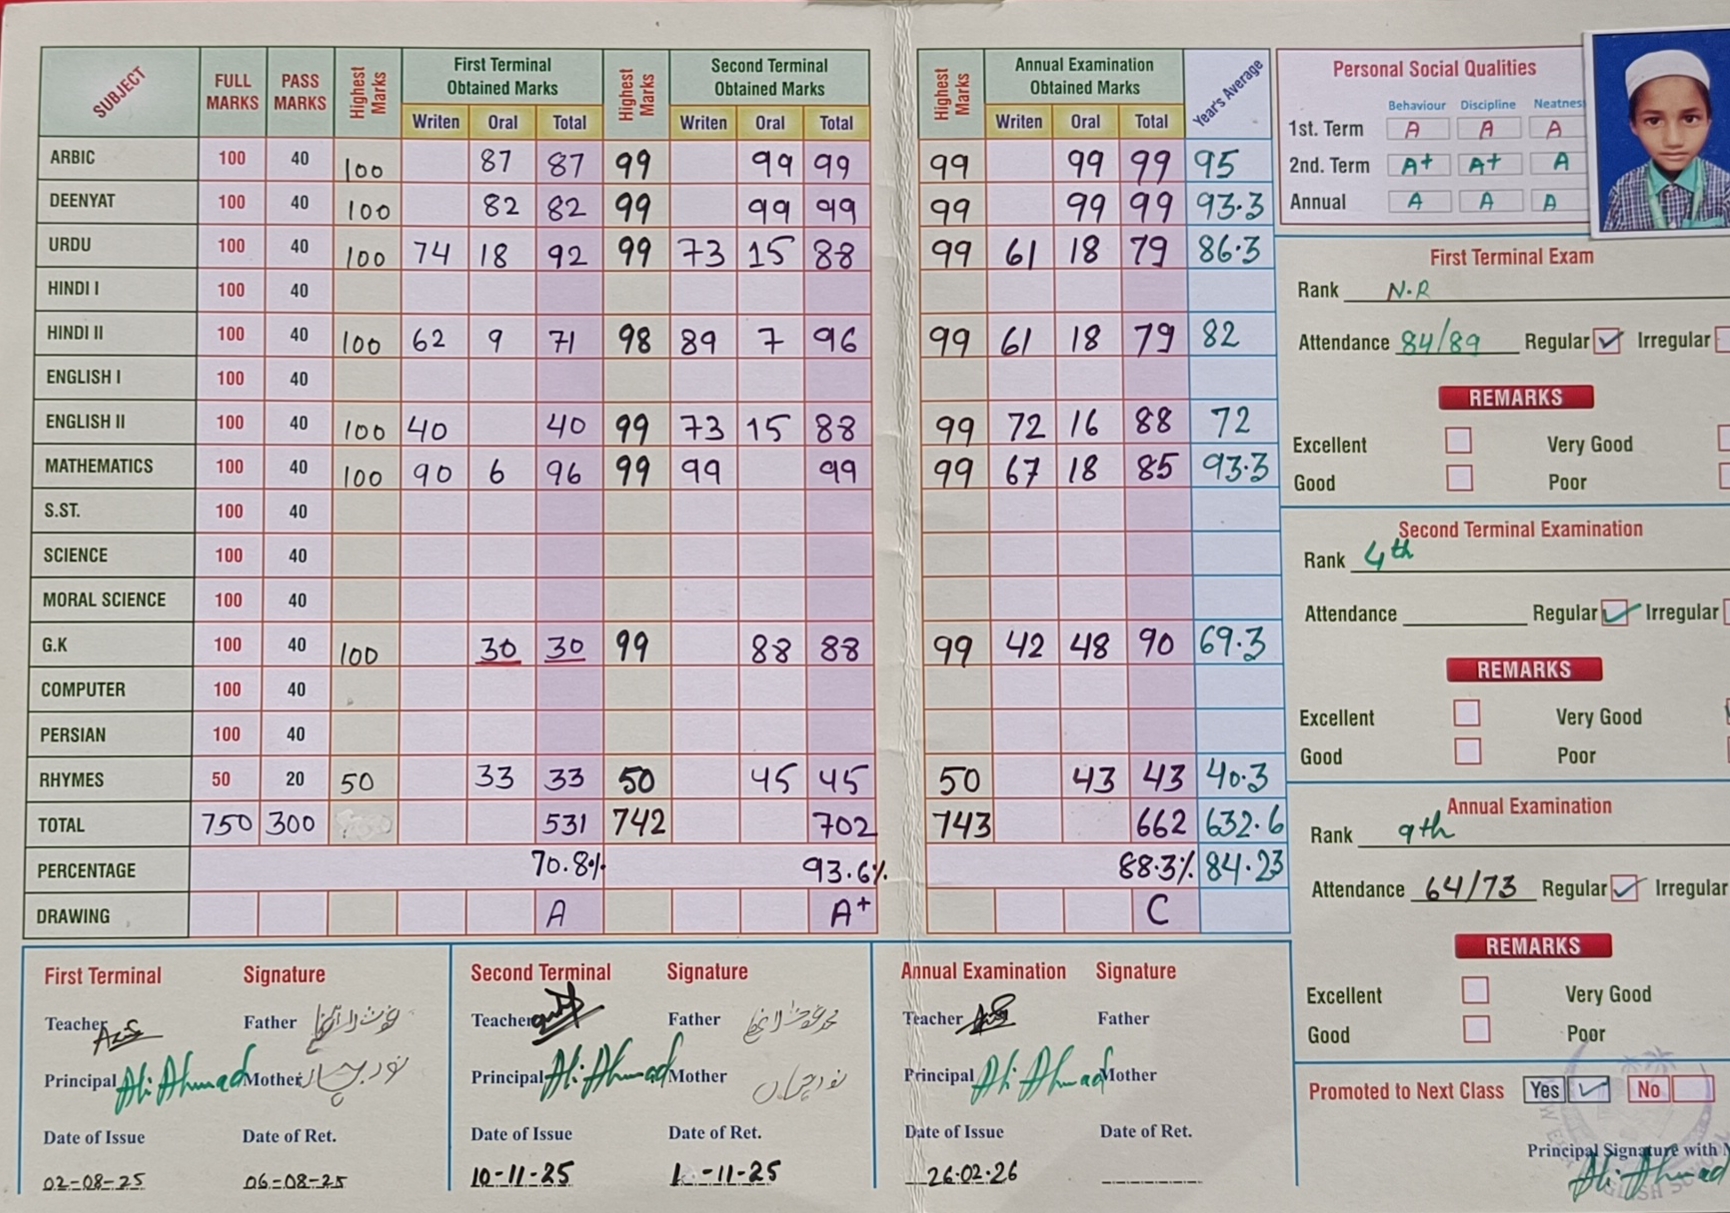 SUBJECT FULL MARKS PASS MARKS Highest Marks First Terminal Obtained Marks Highest Marks Second Terminal Obtained Marks Highest Marks Annual Examination Obtained Marks Year's Average
Writen Oral Total Writen Oral Total Writen Oral Total
ARBIC 100 40 100 87 87 99 99 99 99 99 99 95
DEENYAT 100 40 100 82 82 99 99 99 99 99 99 93.3
URDU 100 40 100 74 18 92 99 73 15 88 99 61 18 79 86.3
HINDI I 100 40
HINDI II 100 40 100 62 9 71 98 89 7 96 99 61 18 79 82
ENGLISH I 100 40
ENGLISH II 100 40 100 40 40 99 73 15 88 99 72 16 88 72
MATHEMATICS 100 40 100 90 6 96 99 99 99 99 67 18 85 93.3
S.ST. 100 40
SCIENCE 100 40
MORAL SCIENCE 100 40
G.K 100 40 100 30 30 99 88 88 99 42 48 90 69.3
COMPUTER 100 40
PERSIAN 100 40
RHYMES 50 20 50 33 33 50 45 45 50 43 43 40.3
TOTAL 750 300 531 742 702 743 662 632.6
PERCENTAGE 70.8% 93.6% 88.3% 84.23
DRAWING A A+ C
Personal Social Qualities
Behaviour Discipline Neatness
1st. Term A A A
2nd. Term A+ A+ A
Annual A A A
First Terminal Exam
Rank N.R
Attendance 84/89 Regular Irregular
REMARKS
Excellent Very Good
Good Poor
Second Terminal Examination
Rank 4th
Attendance Regular Irregular
REMARKS
Excellent Very Good
Good Poor
Annual Examination
Rank 9th
Attendance 64/73 Regular Irregular
REMARKS
Excellent Very Good
Good Poor
Promoted to Next Class Yes No
Principal Signature with
Ali Ahmad
First Terminal Signature
Teacher Father
Principal Ali Ahmad Mother نور جہاں
Date of Issue Date of Ret.
02-08-25 06-08-25
Second Terminal Signature
Teacher Father
Principal Ali Ahmad Mother نور جہاں
Date of Issue Date of Ret.
10-11-25 -11-25
Annual Examination Signature
Teacher Father
Principal Ali Ahmad Mother
Date of Issue Date of Ret.
26.02.26